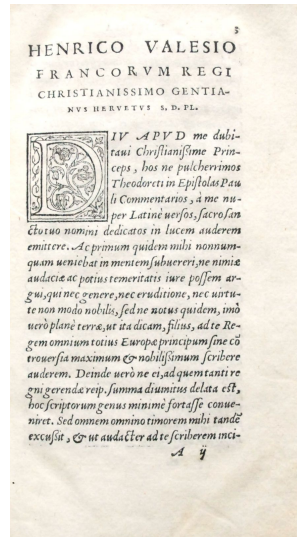 3
HENRICO VALESIO
FRANCORVM REGI
CHRISTIANISSIMO GENTIA-
NVS HERVETVS S. D. PL.
DIV APVD me dubi-
taui Chriſtianißime Prin-
ceps, hos ne pulcherrimos
Theodoreti in Epiſtolas Pau
li Commentarios, a me nu-
per Latinè uerſos, ſacroſan
cto tuo nomini dedicatos in lucem auderem
emittere. Ac primum quidem mihi nonnum-
quam ueniebat in mentem ſubuereri, ne nimiæ
audaciæ ac potius temeritatis iure poſſem ar-
gui, qui nec genere, nec eruditione, nec uirtu-
te non modo nobilis, ſed ne notus quidem, imò
uerò planè terræ, ut ita dicam, filius, ad te Re-
gem omnium totius Europæ principum ſine cõ
trouerſia maximum & nobiliſsimum ſcribere
auderem. Deinde uerò ne ei, ad quem tanti re
gni gerendæ reip. ſumma diuinitus delata eſt,
hoc ſcriptorum genus minimè fortaſſe conue-
niret. Sed omnem omnino timorem mihi tandẽ
excußit, & ut audacter ad te ſcriberem inci-
A ij